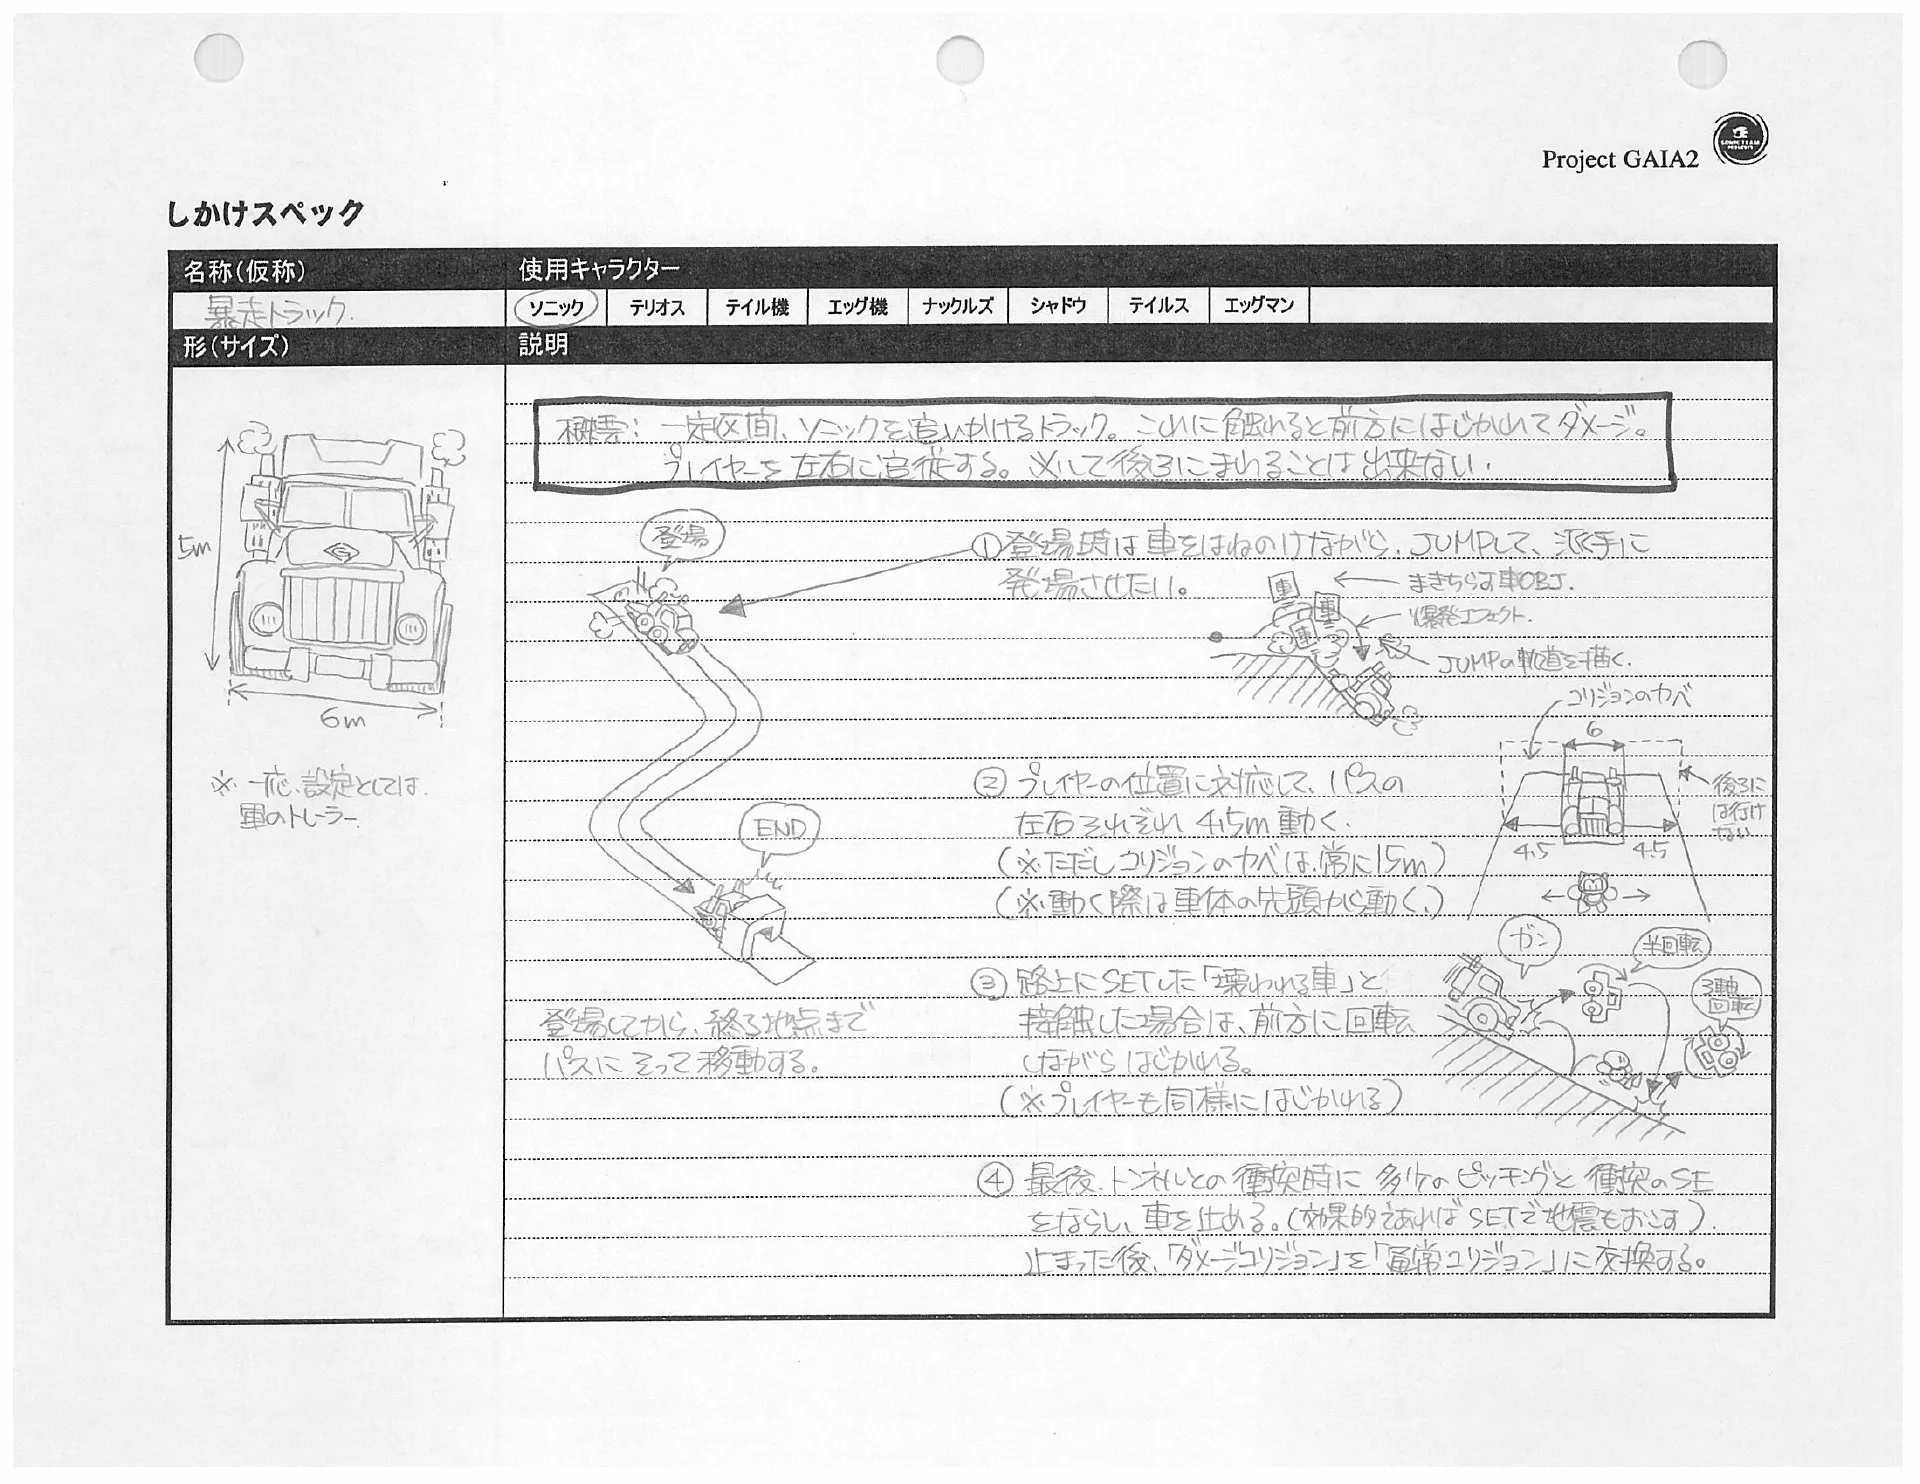 Project GAIA2
しかけスペック
名称(仮称)
使用キャラクター
暴走トラック.
ソニック
テリオス
テイル機
エッグ機
ナックルズ
シャドウ
テイルス
エッグマン
形(サイズ)
説明
概要: 一定区間、ソニックを追いかけるトラック。これに触れると前方にはじかれてダメージ。
プレイヤーを左右に追従する。決して後ろにまわることは出来ない.
5m
G
6m
※一応、設定としては.
軍のトレーラー.
登場
END
登場してから、終る地点まで
パスにそって移動する。
①登場時は車をはねのけながら、JUMPして、派手に
登場させたい。
車
車
車
まきちらす車OBJ.
爆発エフェクト.
JUMPの軌道を描く.
②プレイヤーの位置に対応して、パスの
左右それぞれ4.5m動く.
(※ただしコリジョンのカベは、常に15m)
(※動く際は車体の先頭から動く、)
コリジョンのカベ
6
後ろに
は行け
ない
4.5
4.5
③路上にSETした「壊われる車」と
接触した場合は、前方に回転
しながらはじかれる。
(※プレイヤーも同様にはじかれる)
ガン
半回転
3軸
回転
④最後、トンネルとの衝突時に多少のピッチングと衝突のSE
をならし、車を止める。(効果的であればSETで地震もおこす).
止まった後、「ダメージコリジョン」を「通常コリジョン」に交換する。